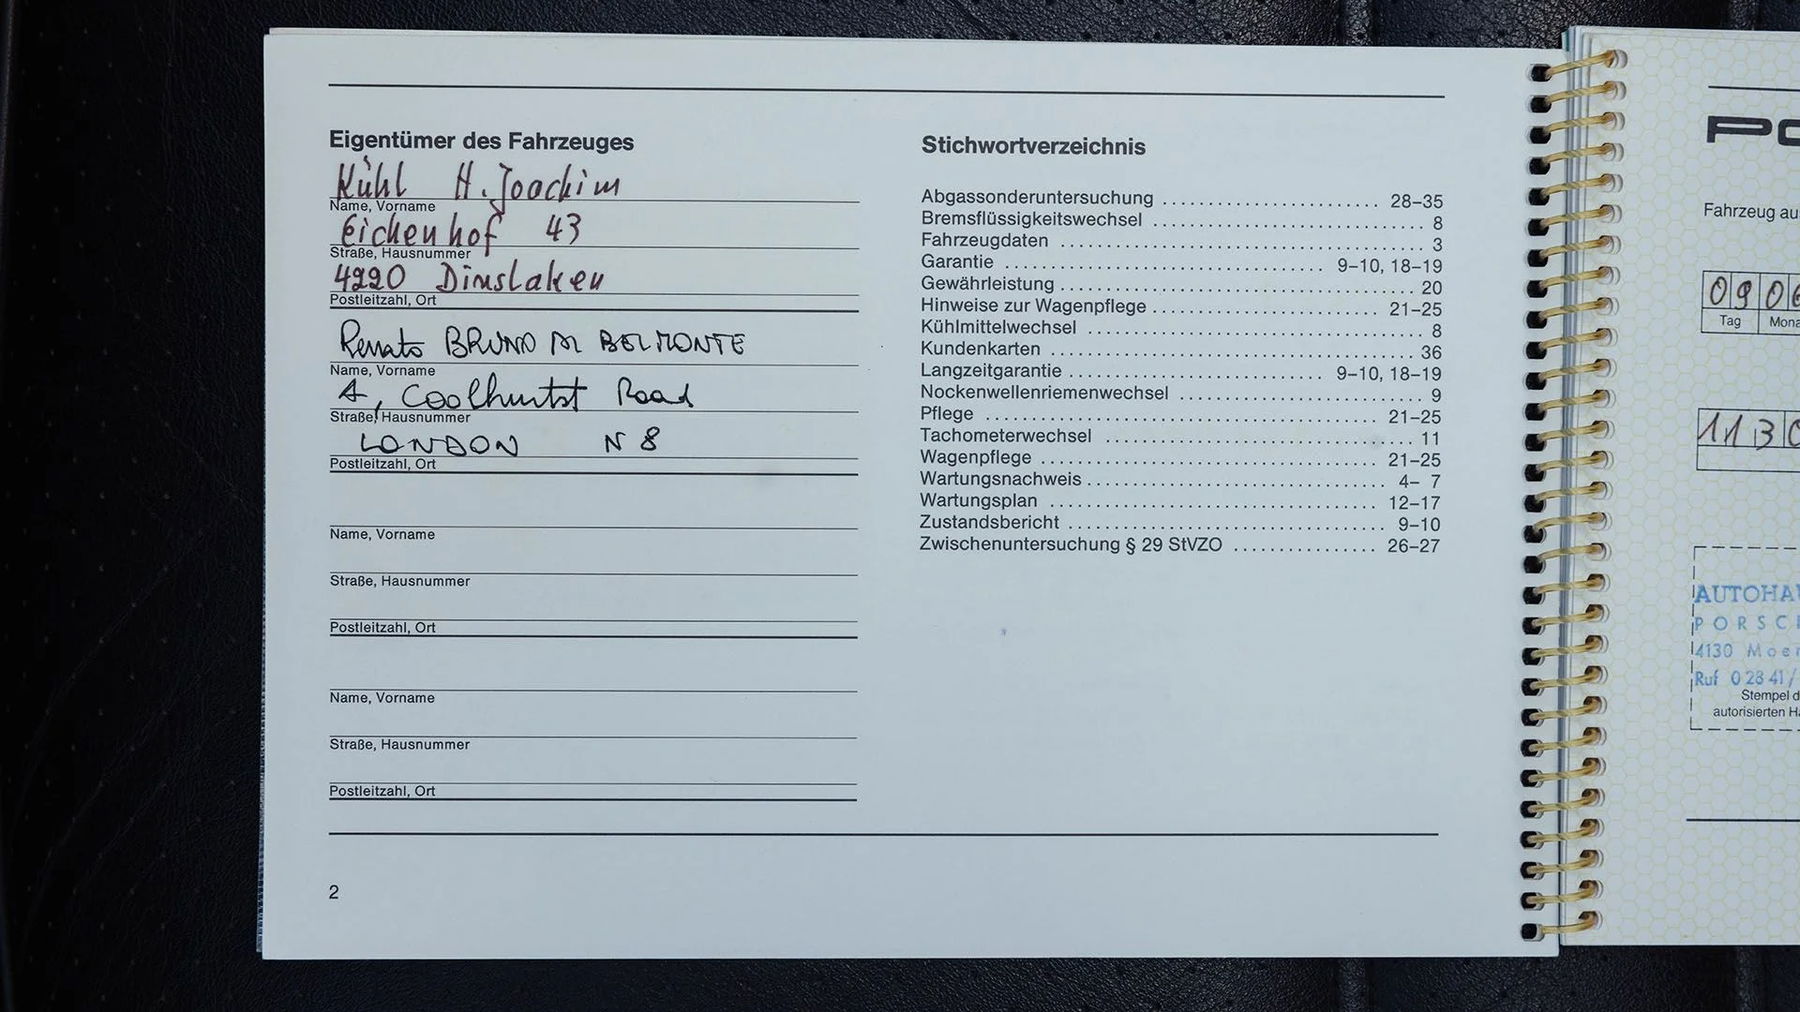 Eigentümer des Fahrzeuges
Kühl H. Joachim
Name, Vorname
Eichenhof 43
Straße, Hausnummer
4220 Dinslaken
Postleitzahl, Ort
Renato BRUNO DI BELMONTE
Name, Vorname
4, Coolhurst Road
Straße, Hausnummer
LONDON N 8
Postleitzahl, Ort
Name, Vorname
Straße, Hausnummer
Postleitzahl, Ort
Name, Vorname
Straße, Hausnummer
Postleitzahl, Ort
2
Stichwortverzeichnis
Abgassonderuntersuchung ........................ 28–35
Bremsflüssigkeitswechsel ........................ 8
Fahrzeugdaten ........................ 3
Garantie ........................ 9–10, 18–19
Gewährleistung ........................ 20
Hinweise zur Wagenpflege ........................ 21–25
Kühlmittelwechsel ........................ 8
Kundenkarten ........................ 36
Langzeitgarantie ........................ 9–10, 18–19
Nockenwellenriemenwechsel ........................ 9
Pflege ........................ 21–25
Tachometerwechsel ........................ 11
Wagenpflege ........................ 21–25
Wartungsnachweis ........................ 4– 7
Wartungsplan ........................ 12–17
Zustandsbericht ........................ 9–10
Zwischenuntersuchung § 29 StVZO ................ 26–27
PO
Fahrzeug au
090
Tag Mona
113
AUTOHAU
PORSC
4130 Moer
Ruf 0 28 41 /
Stempel d
autorisierten Hä